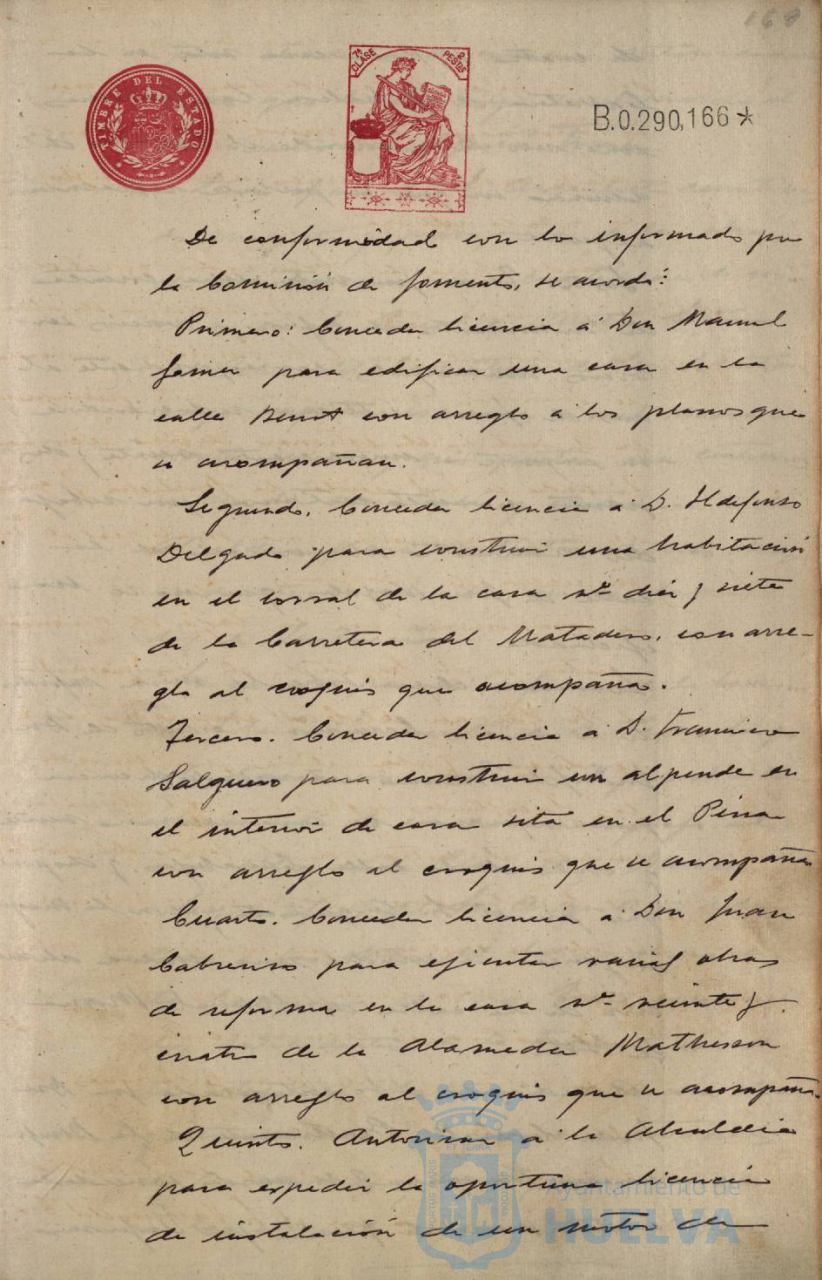 168
TIMBRE DEL ESTADO
7ª CLASE 2 PESTAS
B.0.290,166*
De conformidad con lo informado por
la Comisión de fomento, se acordó:
Primero: Conceder licencia á Don Manuel
para edificar una casa en la
calle con arreglo a los planos que
se acompañan.
Segundo. Conceder licencia á D. Ildefonso
Delgado para construir una habitación
en el corral de la casa nº diez y siete
de la Carretera del Matadero, con arre-
glo al croquis que acompaña.
Tercero. Conceder licencia á D. Francisco
Salguero para construir un alpende en
el interior de casa sita en el
con arreglo al croquis que se acompaña
Cuarto. Conceder licencia á Don Juan
para ejecutar varias obras
de reforma en la casa nº veinte y
cuatro de la Alameda Mathesson
con arreglo al croquis que se acompaña.
Quinto. Autorizar á la Alcaldía
para expedir la oportuna licencia
de instalación de un motor de
Ayuntamiento de
HUELVA